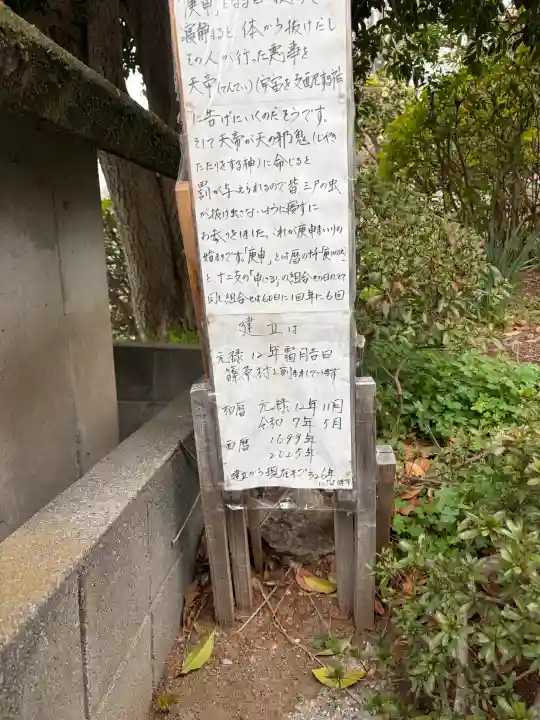 「庚申」と
寝静まると、体から抜けだし
その人が行った悪事を
天帝(てんてい)(宇宙を支配する神)
に告げにいくのだそうです。
そして天帝が天の邪鬼(じゃき
たたりをする神)に命じると
罰が与えられるので皆三尸の虫
が抜け出さないように寝ずに
お参りをしました。これが庚申まいりの
始まりです。「庚申」とは暦の十干
と十二支の「申(さる)」の組合せの日のことで
同じ組合せは60日に1回年に6回
建立は
元禄12年霜月吉日
篠原村と刻まれています
和暦 元禄12年11月
令和 7年 5月
西暦 1699年
2025年
建立から現在まで326年